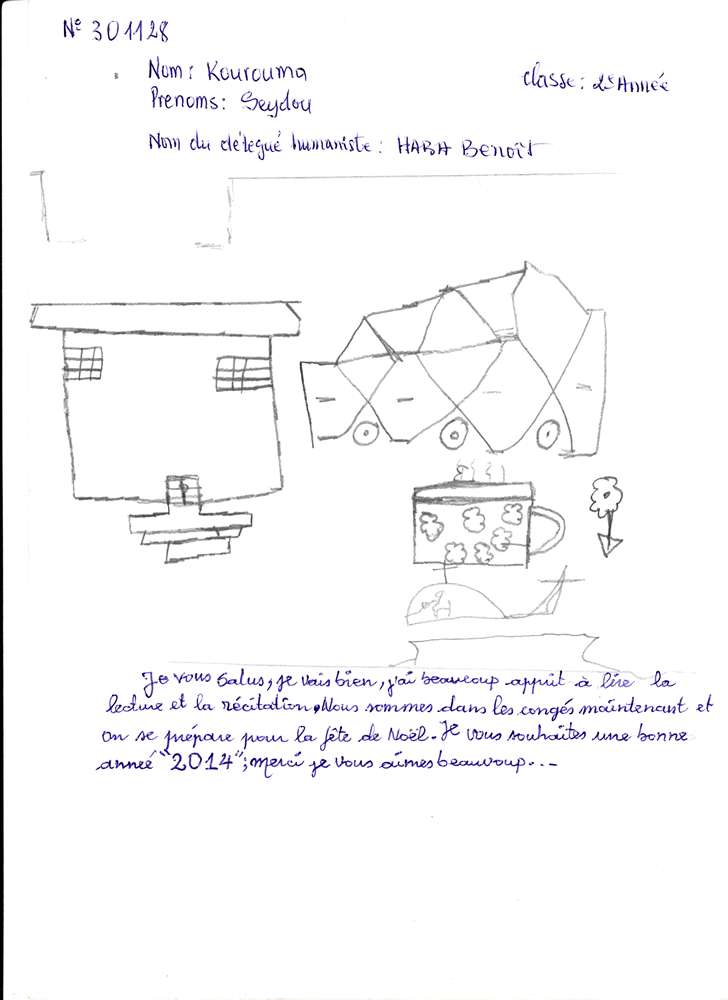 N° 301128
Nom : Kourouma
classe : 2e Année
Prenoms : Seydou
Nom du délegué humaniste : HABA BENOÎT
Je vous salus, je vais bien, j'ai beaucoup apprit à lire la
lecture et la récitation, Nous sommes dans les congés maintenant et
on se prépare pour la fête de Noël. Je vous souhaites une bonne
anneé "2014"; merci je vous aimes beaucoup...